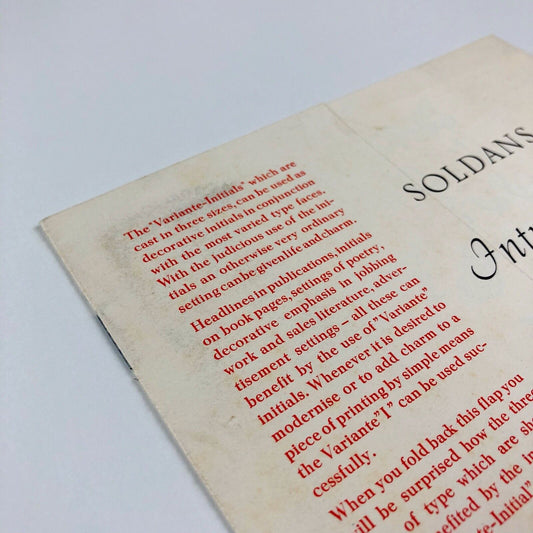 The "Variante-Initials" which are
cast in three sizes, can be used as
decorative initials in conjunction
with the most varied type faces.
With the judicious use of the ini-
tials an otherwise very ordinary
setting can be given life and charm.
Headlines in publications, initials
on book pages, settings of poetry,
decorative emphasis in jobbing
work and sales literature, adver-
tisement settings – all these can
benefit by the use of "Variante"
initials. Whenever it is desired to
modernise or to add charm to a
piece of printing by simple means
the Variante"I" can be used suc-
cessfully.
When you fold back this flap you
will be surprised how the three
of type which are
benefited by the
SOLDANS